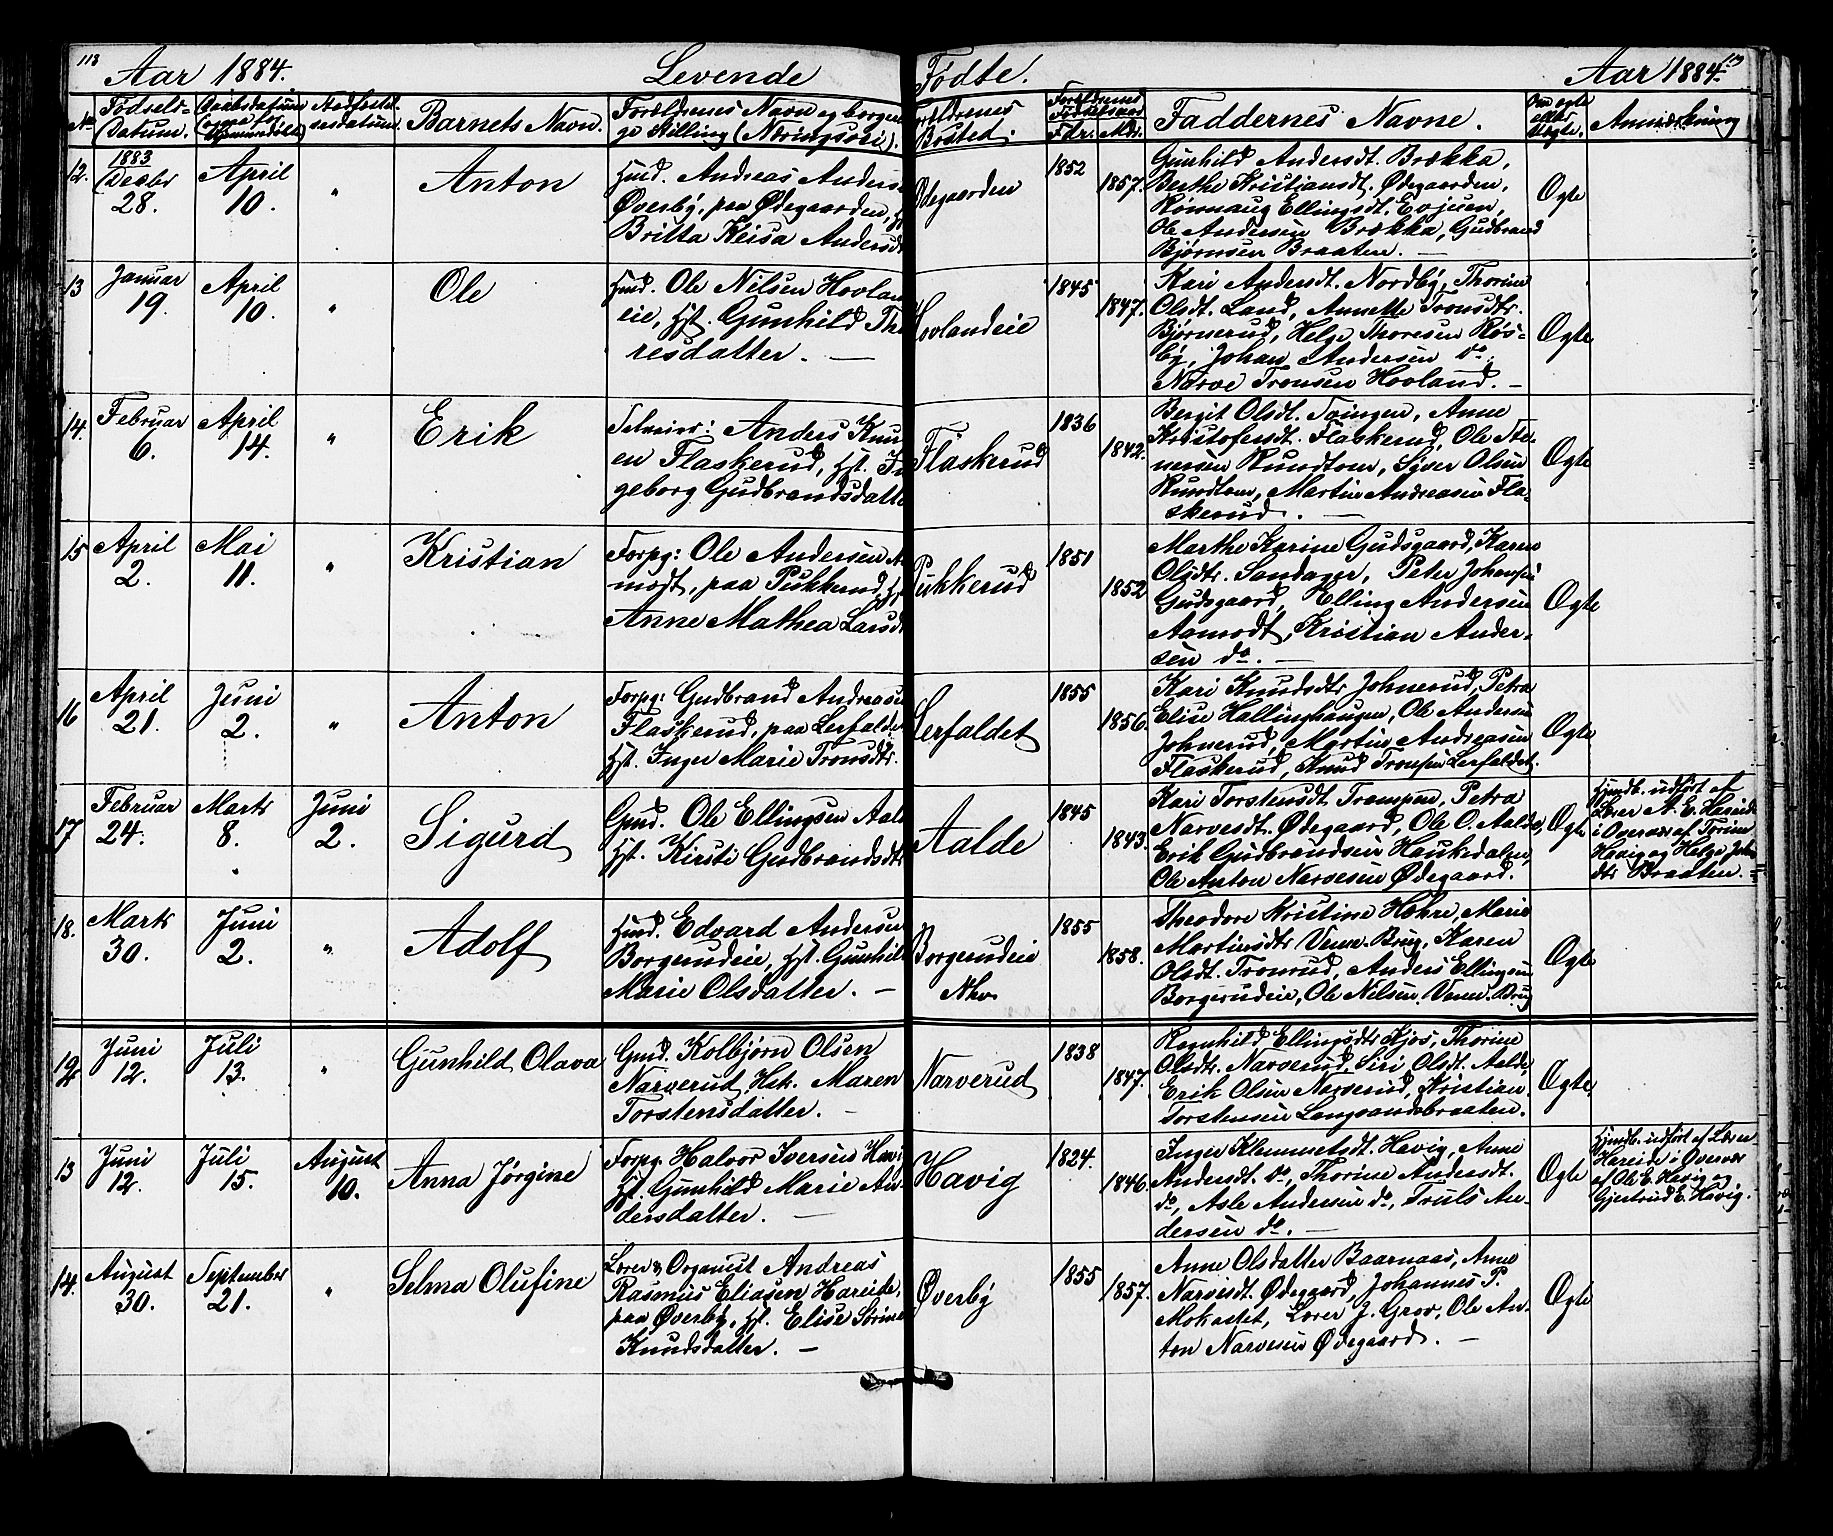 118
Aar 1884.
Levende
Fødte.
Aar 1884.
119
No
Fødsels-
Datum.
Daabsdatum
Nedfostel-
sesdatum.
Barnets Navn.
Forældrenes Navn og borger-
ge Stilling (Næringsvei).
Forældrenes
Bosted.
Forældrenes
Fødselsaar
Fdr. Mdr.
Faddernes Navne.
Om ægte
eller
uægte.
Anmærkning
12.
1883
Decbr
28.
April
10.
"
Anton
Husm. Andreas Anders
Øverby, paa Ødegaarden,
Britta Keisa Andersdt
Ødegaarden
1852
1857.
Gunhild Andersdt. Brækka,
Berthe Kristiansdt. Ødegaarden,
Rønnaug Ellingsdt. Evjuen,
Ole Andersen Brækka, Gudbrand
Bjørnsen Braaten. —
Ægte
13
Januar
19.
April
10.
"
Ole
Husm. Ole Nilsen Hovlan
eie, Hst. Gunhild Tho
resdatter. —
Hovlandeie
1845
1847.
Kari Andersdt. Nordby, Thorine
Olsdt. Land, Annette Tronsdtr.
Bjørnerud, Helge Thoresen Røs-
by, Johan Andersen do.,
Narve Tronsen Hovland. —
Ægte
14.
Februar
6.
April
14.
"
Erik
Selveier: Anders Knu
en Flaskerud, Hst. In
geborg Gudbrandsdatte
Flaskerud
1836
1842.
Bergit Olsdt. Tningen, Anne
Kristofersdt. Flaskerud, Ole Ste-
nersen Rundtom, Siver Olsen
Rundtom, Martin Andreasen Fla-
skerud. —
Ægte
15
April
2.
Mai
11.
"
Kristian
Forpg: Ole Andersen A
modt, paa Pukkerud, Hst
Anne Mathea Larsd
Pukkerud
1851
1852
Marthe Karine Gudsgaard, Karen
Olsdtr. Sandager, Peter Johansen
Gudsgaard, Elling Andersen
Aamodt, Kristian Ander-
sen do. —
Ægte
16
April
21.
Juni
2.
"
Anton
Forpg: Gudbrand Andreasen
Flaskerud, paa Lerfaldet
Hst. Inger Marie Tronsdtr.
Lerfaldet
1855
1856.
Kari Knudsdtr. Johnerud, Petra
Elise Hallinghaugen, Ole Andersen
Johnerud, Martin Andreasen
Flaskerud, Knud Tronsen Lerfaldet.
Ægte
17
Februar
24.
Marts
8.
"
Juni
2.
Sigurd
Gmd. Ole Ellingsen Aald
Hst. Kirsti Gudbrandsdtr
Aalde
1845
1843.
Kari Torstensdt. Trompen, Petra
Narvesdt. Ødegaard, Ole O. Aalde,
Erik Gudbrandsen Haukedalen,
Ole Anton Narvesen Ødegaard.
Ægte
Hjmdb. udført af
Lærer A. E. Hareide
i Overvær af Torine
Havig og Helge Joh
dtr Braaten. —
18.
Marts
30.
Juni
2.
"
Adolf
Husm. Edvard Andersen
Borgerudeie, Hst. Gunhild
Marie Olsdatter. —
Borgerudeie
Nho
1855
1858.
Theodore Kristine Høhre, Marie
Martinsdtr. Veme Brug, Karen
Olsdt. Tronrud, Anders Ellingsen
Borgerudeie, Ole Nilsen Veme Brug
Ægte
12
Juni
12.
Juli
13.
"
Gunhild Olava
Gmd. Kolbjørn Olsen
Narverud, Hst. Maren
Torstensdatter. —
Narverud
1838
1847.
Ragnhild Ellingsdtr Kjos, Thorine
Olsdtr. Narverud, Siri Olsdt. Aalde,
Erik Olsen Narverud, Kristian
Torstensen Langsandsbraaten.
Ægte
13
Juni
12.
Juli
15.
August
10.
Anna Jørgine
Forpg. Halvor Iversen Havi
Hst. Gunhild Marie An
dersdatter. —
Havig
1824.
1846.
Inger Klemmetsdt. Havig, Anne
Andersdt. do, Thorine Andersdt.
do, Asle Andersen do, Truls An-
dersen do. —
Ægte
Hjmdb. udført af Lærer
Hareide i Overvær
af Ole E. Havig og
Gjertrud E. Havig.
14.
August
30.
September
21.
"
Selma Olufine
Lærer & Organist Andreas
Rasmus Eliasen Hareide,
paa Øverby, Hst. Elise Sørine
Knudsdatter. —
Øverby
1855
1857.
Anne Olsdatter Baarnaas, Anne
Narvesdt. Ødegaard, Johannes P.
Mokastet, Lærer J. Grov, Ole An-
ton Narvesen Ødegaard. —
Ægte